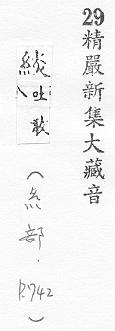 29精嚴新集大藏音
緂
吐敢
（糸部．P.742）